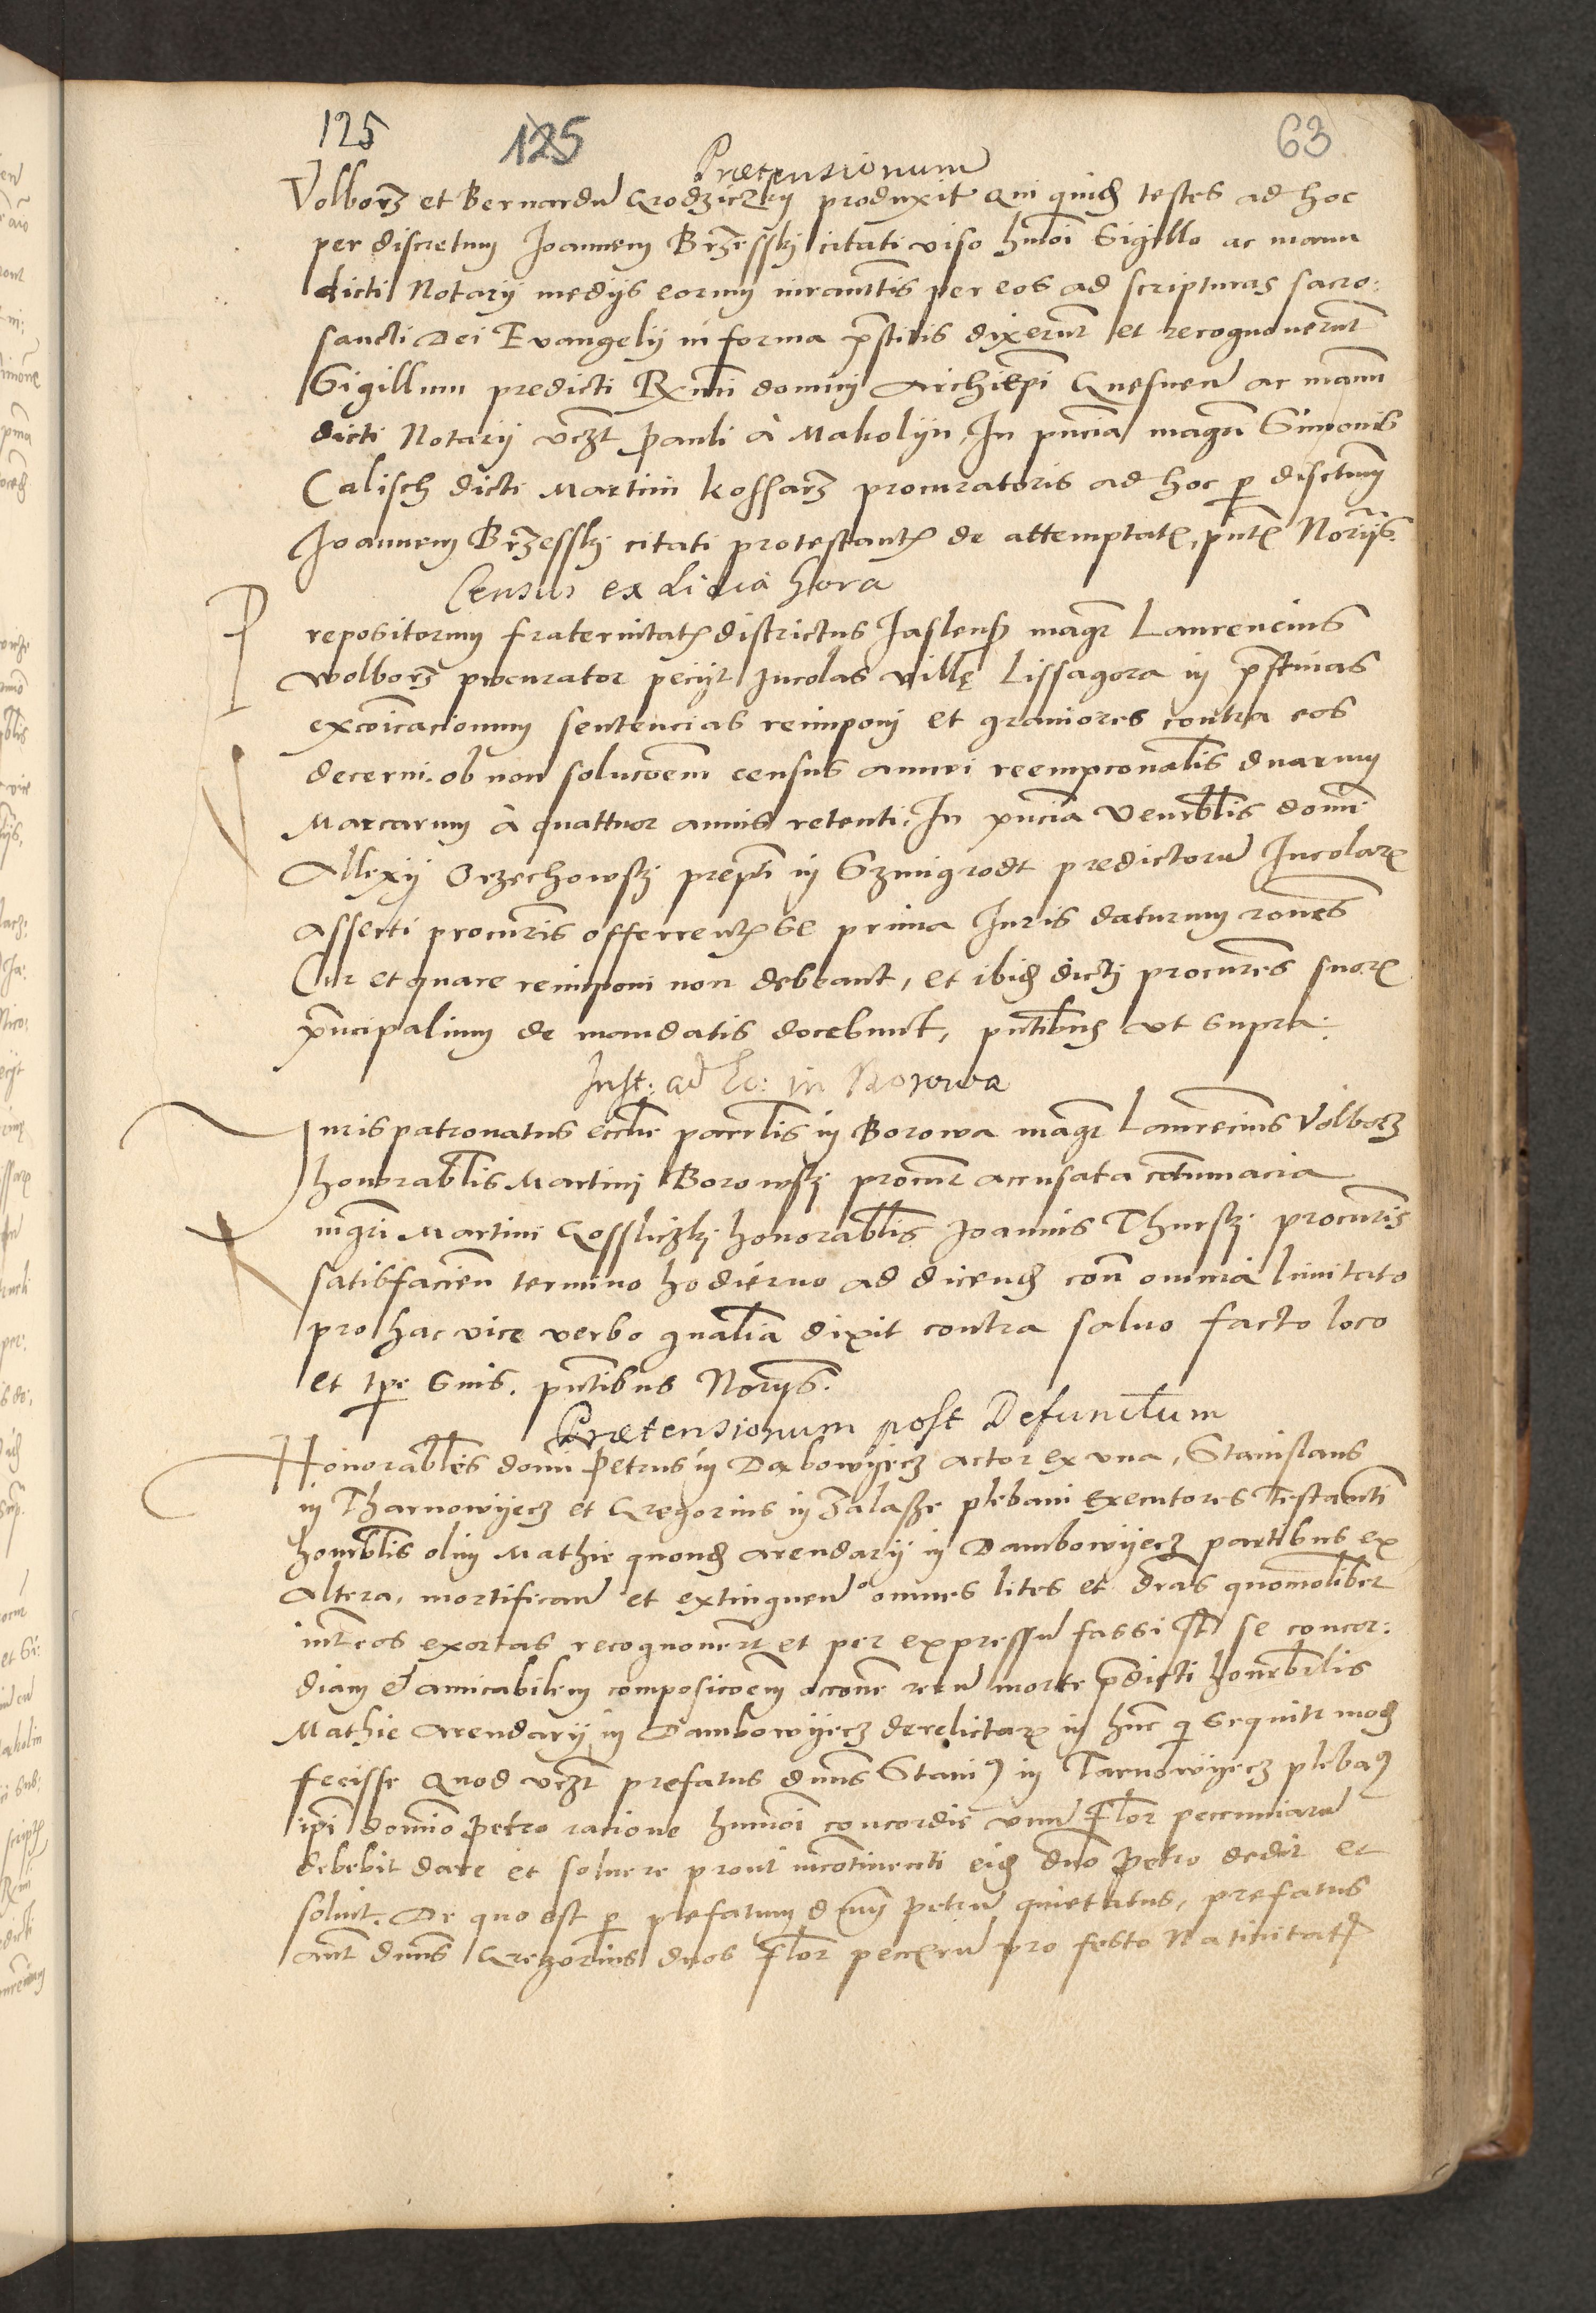 125 125 63
Prætensionum
Volborz et Bernardū Grodziczkij produxit Qui quidē testes ad hoc
per discretum Joannem Brzesskj citati viso hmōi Sigillo ac manu
dicti Notarij medijs eorum iuramētis per eos ad scripturas sacro:
sancti Dei Evangelij in forma pr̄stitis dixerūt et recognouerūt
Sigillum predicti Rx̄mi domini Archiepi Gnesnen̄ ac manū
dicti Notarij vczt Pauli à Makolijn, In pn̄cia magrī Simonis
Calisch dicti Martini Kossarz procuratoris ad hoc p disctum
Joannem Brzesskj citati protestantꝭ de attemptatꝭ, pn̄tꝭ Norijs.
Census ex Lissa hora
Prepositorum fraternitatꝭ districtus Jaslensꝭ magr̄ Laurencius
Wolborz procurator pecijt Incolas villę Lissagora in pr̄stinas
excōicacionum sentencias reimponi et grauiores contra eos
decerni. ob non solucōem census annui reempconalīs duarum
Marcarum à quattuor annis retenti, In pn̄cia Venrblis domī
Allexij Orzechowskj preptī in Szmigrodt predictorū Incolarꝭ
Asserti procurīs offerrentꝭ se prima Juris daturum rōnes
Cur et quare reimponi non debeant, et ibidē dictj procures suorꝭ
pr̄ncipalium de mandatis docebunt, pn̄tibus vt supra.
Inst: ad Ec: in Borowa
Jurispatronatus ecclie parrlis in Borowa magr̄ Laurēcius Volborz
honorablis Martini Borowskj procur̄ accusata cōtumacia
mgrī Martini Gossliczkj honorablis Joannis Thurskj procurīs
satisfacien̄ termino hodierno ad dicend̄ con̄ omnia limitato
pro hac vice verbo gnalia dixit contra saluo facto loco
et tpe suis. pn̄tibus Norijs.
Prætensionum post Defunctum
Honorablēs domī Petrus in Dabowijecz actor ex vna, Stanislaus
in Tharnowijecz et Gregorius in Zalasze plebani executores Testamtī
honrblis olim Mathie quond̄ arendarij in Dambowijecz partibus ex
Altera, mortificand̄ et extinguend̄o omnes lites et dras quomolibet
int̄ eos exortas recognouert̄ et per expressū fassi st̄ se concor:
diam et amicabilem composicōem occone rerū morte p̄dicti honrblis
Mathie Arendarij in Dambowijecz derelictarꝭ in hūc q̄ sequitr̄ mod̄
fecisse Quod vczt prefatus dnns Staniꝰ in Tarnowijecz plebaꝰ
ipī domino Petro ratione hmmōi concordie vnū Flor pecuniarū
debebit dare et soluere prout incōtinenti eid̄ dno Petro dedit et
soluit. De quo est p prefatum dnū̄ Petrū quietatus, prefatus
aūt dnns Gregorius duos Flor pecniarū pro festo Natiuitatꝭ